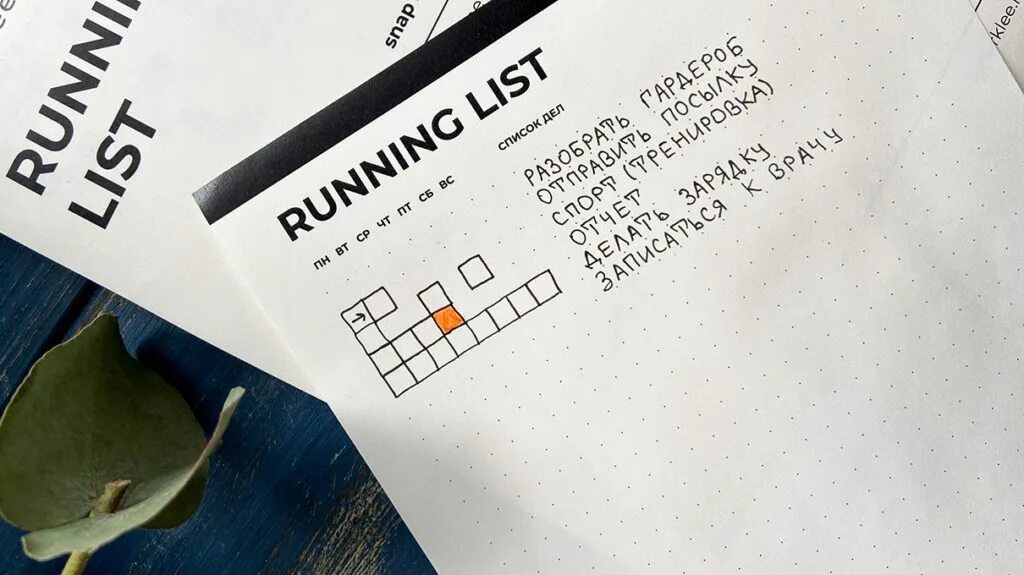 RUNNING
LIST
snap
RUNNING LIST
СПИСОК ДЕЛ
ПН ВТ СР ЧТ ПТ СБ ВС
РАЗОБРАТЬ ГАРДЕРОБ
ОТПРАВИТЬ ПОСЫЛКУ
СПОРТ (ТРЕНИРОВКА)
ОТЧЕТ
ДЕЛАТЬ ЗАРЯДКУ
ЗАПИСАТЬСЯ К ВРАЧУ